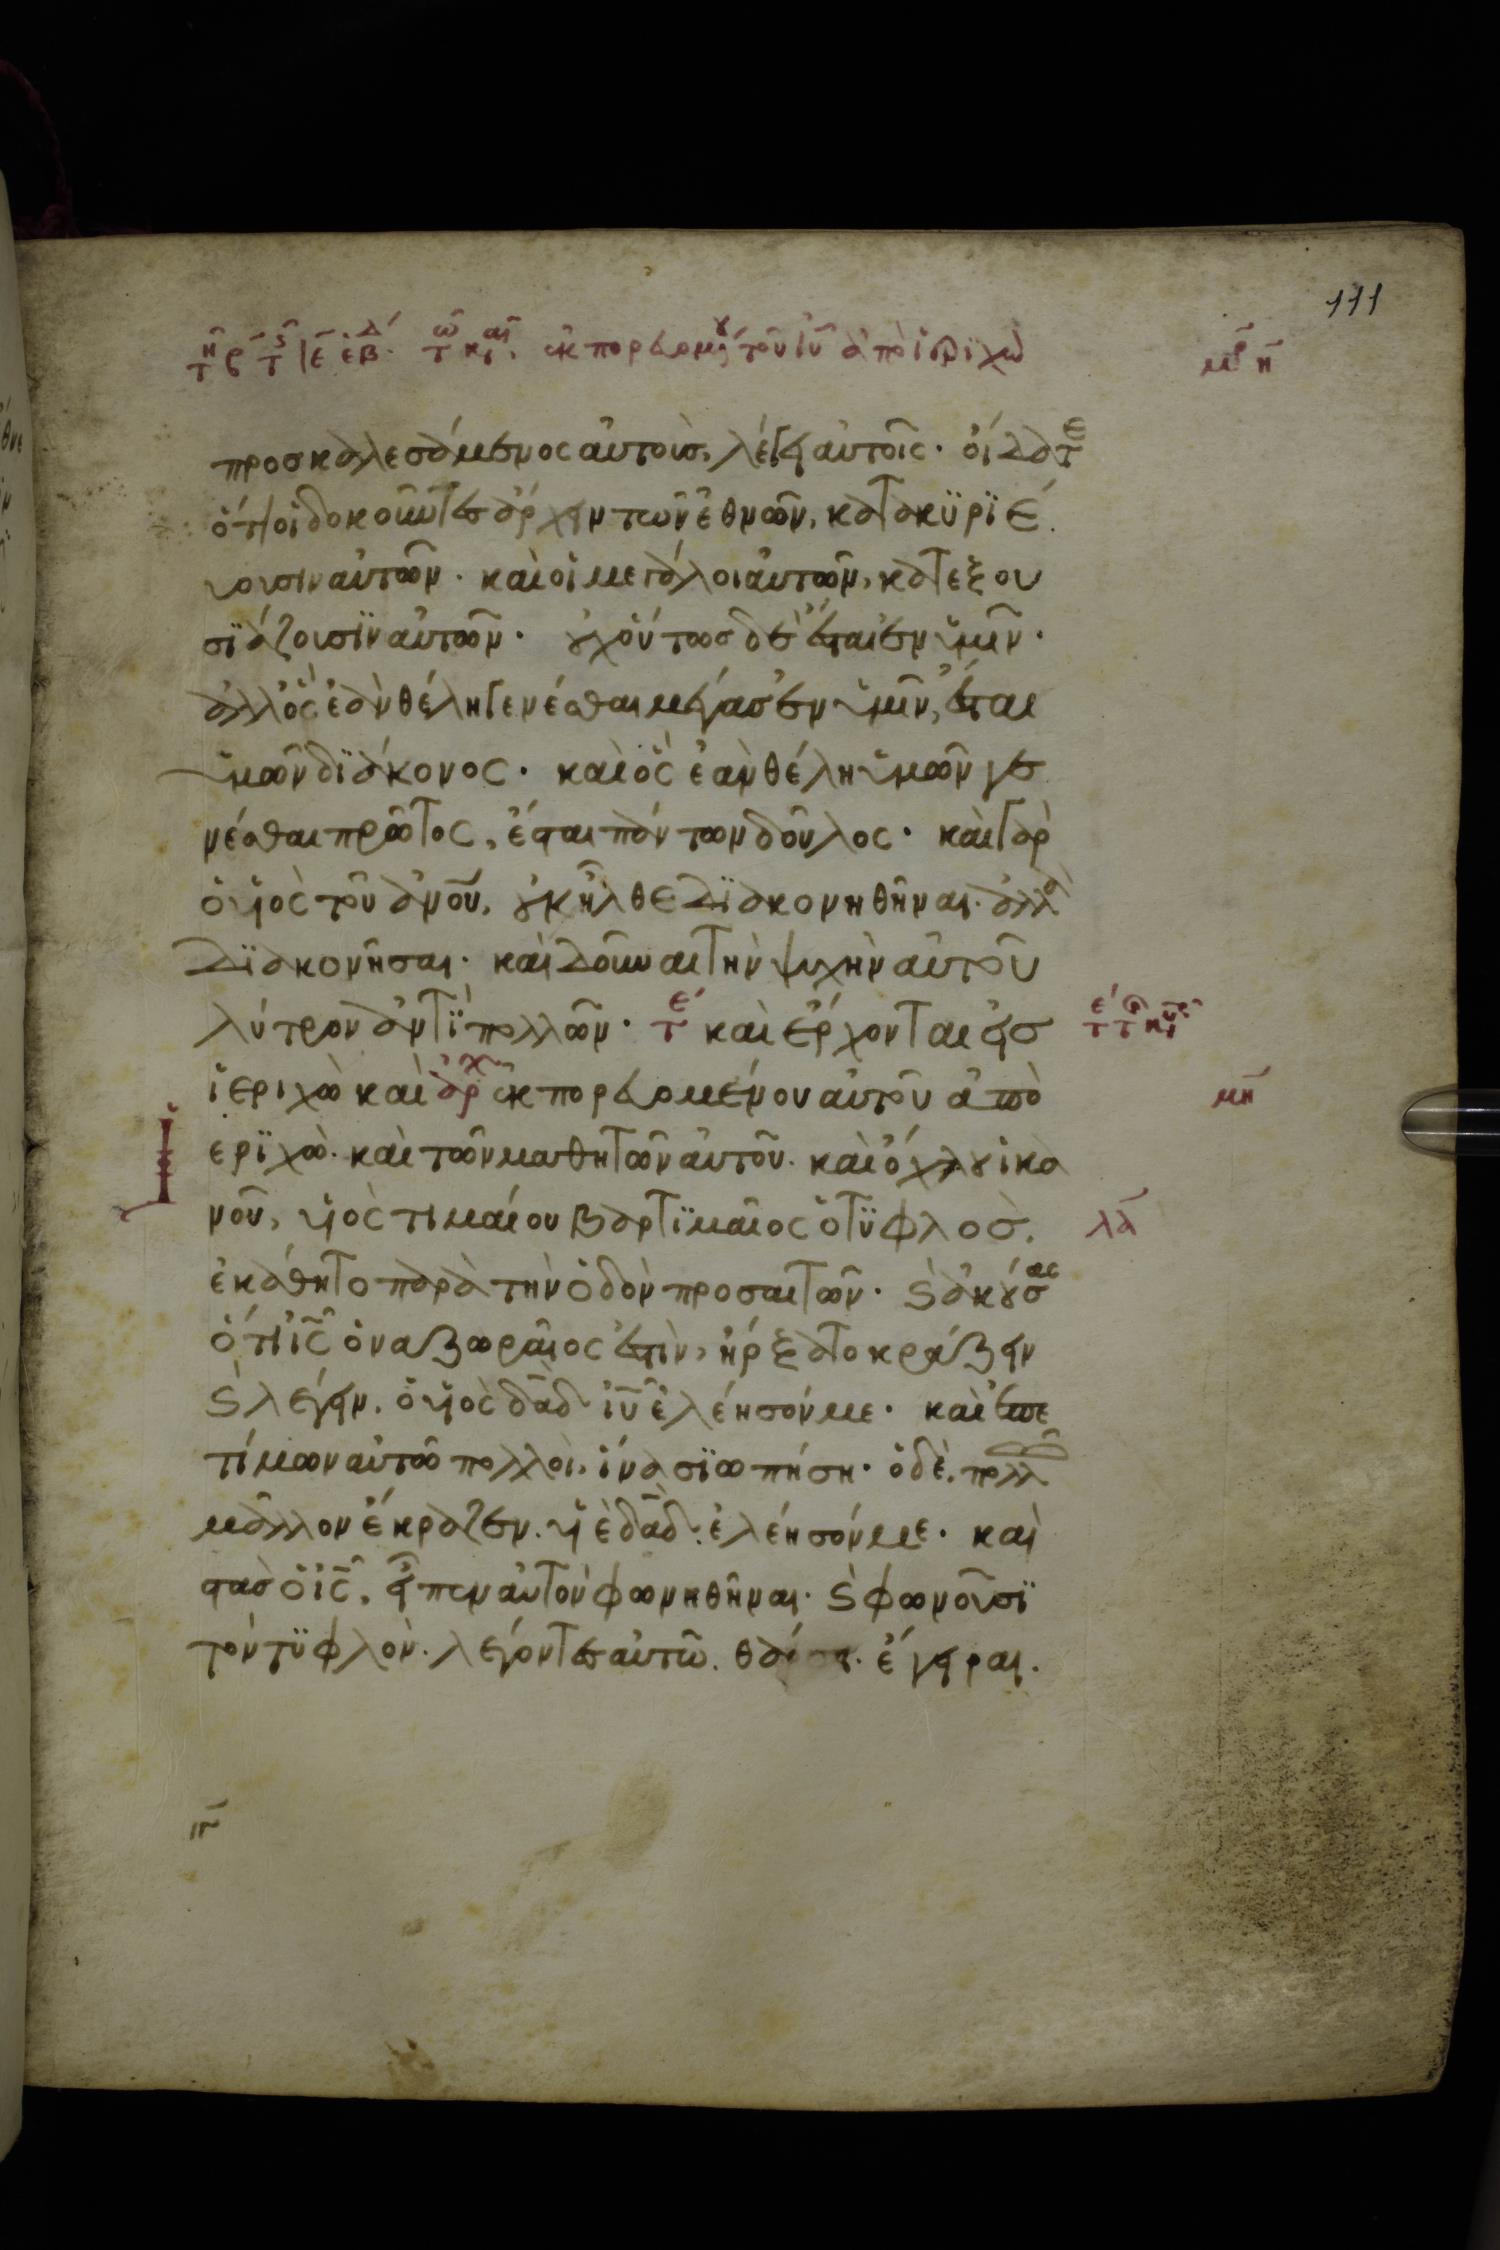 111
ἐκπορευομένου τοῦ ιυ ἀπὸ ἱεριχὼ
προσκαλεσάμενος αὐτοὺσ, λέγει αὐτοῖς· οἴδατε
ὅτι οἱ δοκοῦντεσ ἄρχειν τῶν ἐθνῶν, κατακϋριέ
υουσιν αὐτῶν· καὶ οἱ μεγάλοι αὐτῶν, κατεξου
σϊάζουσϊν αὐτῶν· οὐχ οὕτωσ δὲ ἔσται ἐν ὑμῖν·
ἀλλ' ὃς ἐὰν θέλη γενέσθαι μέγασ ἐν ὑμῖν, ἔσται
ὑμῶν δϊάκονος· καὶ ὃς ἐὰν θέλη ὑμῶν γε
νέσθαι πρῶτος, ἔσται πάντων δοῦλος· καὶ γὰρ
ὁ υἱὸς τοῦ ανου, οὐκ ἦλθε δϊακονηθῆναι· ἀλλὰ
δϊακονῆσαι· καὶ δοῦναι τὴν ψυχὴν αὐτοῦ
λύτρον ἀντῒ πολλῶν· τε καὶ ἔρχονται εἰσ
ἱεριχὼ καὶ ἀρχ ἐκπορευομένου αὐτοῦ ἀπὸ
ἱερϊχὼ· καὶ τῶν μαθητῶν αὐτοῦ· καὶ ὄχλου ἱκα
μη
νοῦ, υἱὸς τιμαίου βαρτϊμαῖος ὁ τϋφλὸσ.
λα
ἐκάθητο παρὰ τὴν ὁδὸν προσαιτῶν· καὶ ἀκούσας
ὅτι ις ὁ ναζωραῖος ἐστὶν, ἤρξατο κράζειν
καὶ λέγειν. ὁ υἱὸς δαδ ιυ ἐλέησόν με· καὶ ἐπε
τίμων αὐτῶ πολλοὶ, ἵνα σϊωπήση· ὁ δὲ πολλῶ
μᾶλλον ἔκραζεν. υἱὲ δαδ ἐλέησόν με· καὶ
στὰσ ὁ ις, εἶπεν αὐτὸν φωνηθῆναι· καὶ φωνοῦσϊ
τὸν τϋφλὸν. λέγοντεσ αὐτῶ. θάρσει· ἔγειραι.